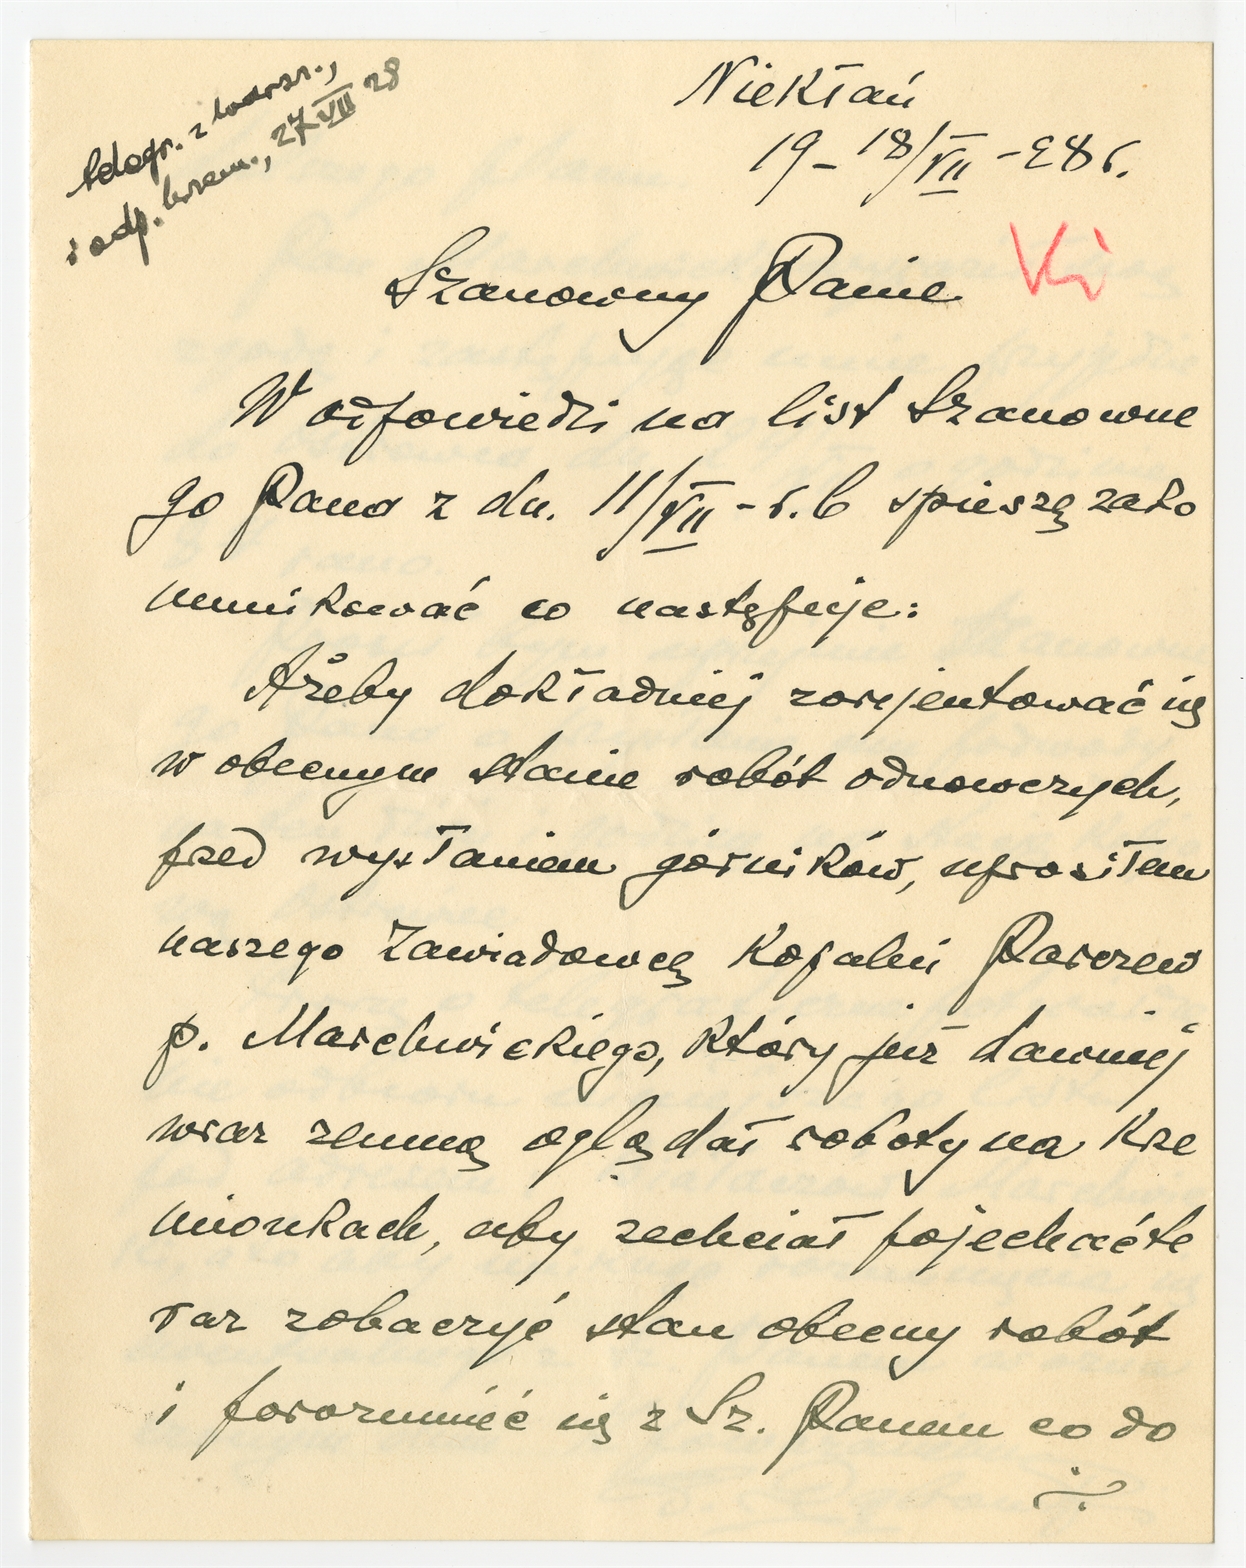 telegr. z Warsz.,
i odp. Krzem., 27 VII 28
Niekłań
19 – 18/VII – 28 r.
Szanowny Panie
Ki
W odpowiedzi na list Szanowne
go Pana z dn. 11/VII – r. b spieszę zako
munikować co następuje:
Ażeby dokładniej zorjentować się
w obecnym stanie robót odnowczych,
przed wysłaniem górników, uprosiłem
naszego Zawiadowcę Kopalni Parczew
p. Marchwickiego, który już dawniej
wraz zemną oglądał roboty na Krze
mionkach, aby zechciał pojechać te
raz zobaczyć stan obecny robót
i porozumieć się z Sz. Panem co do